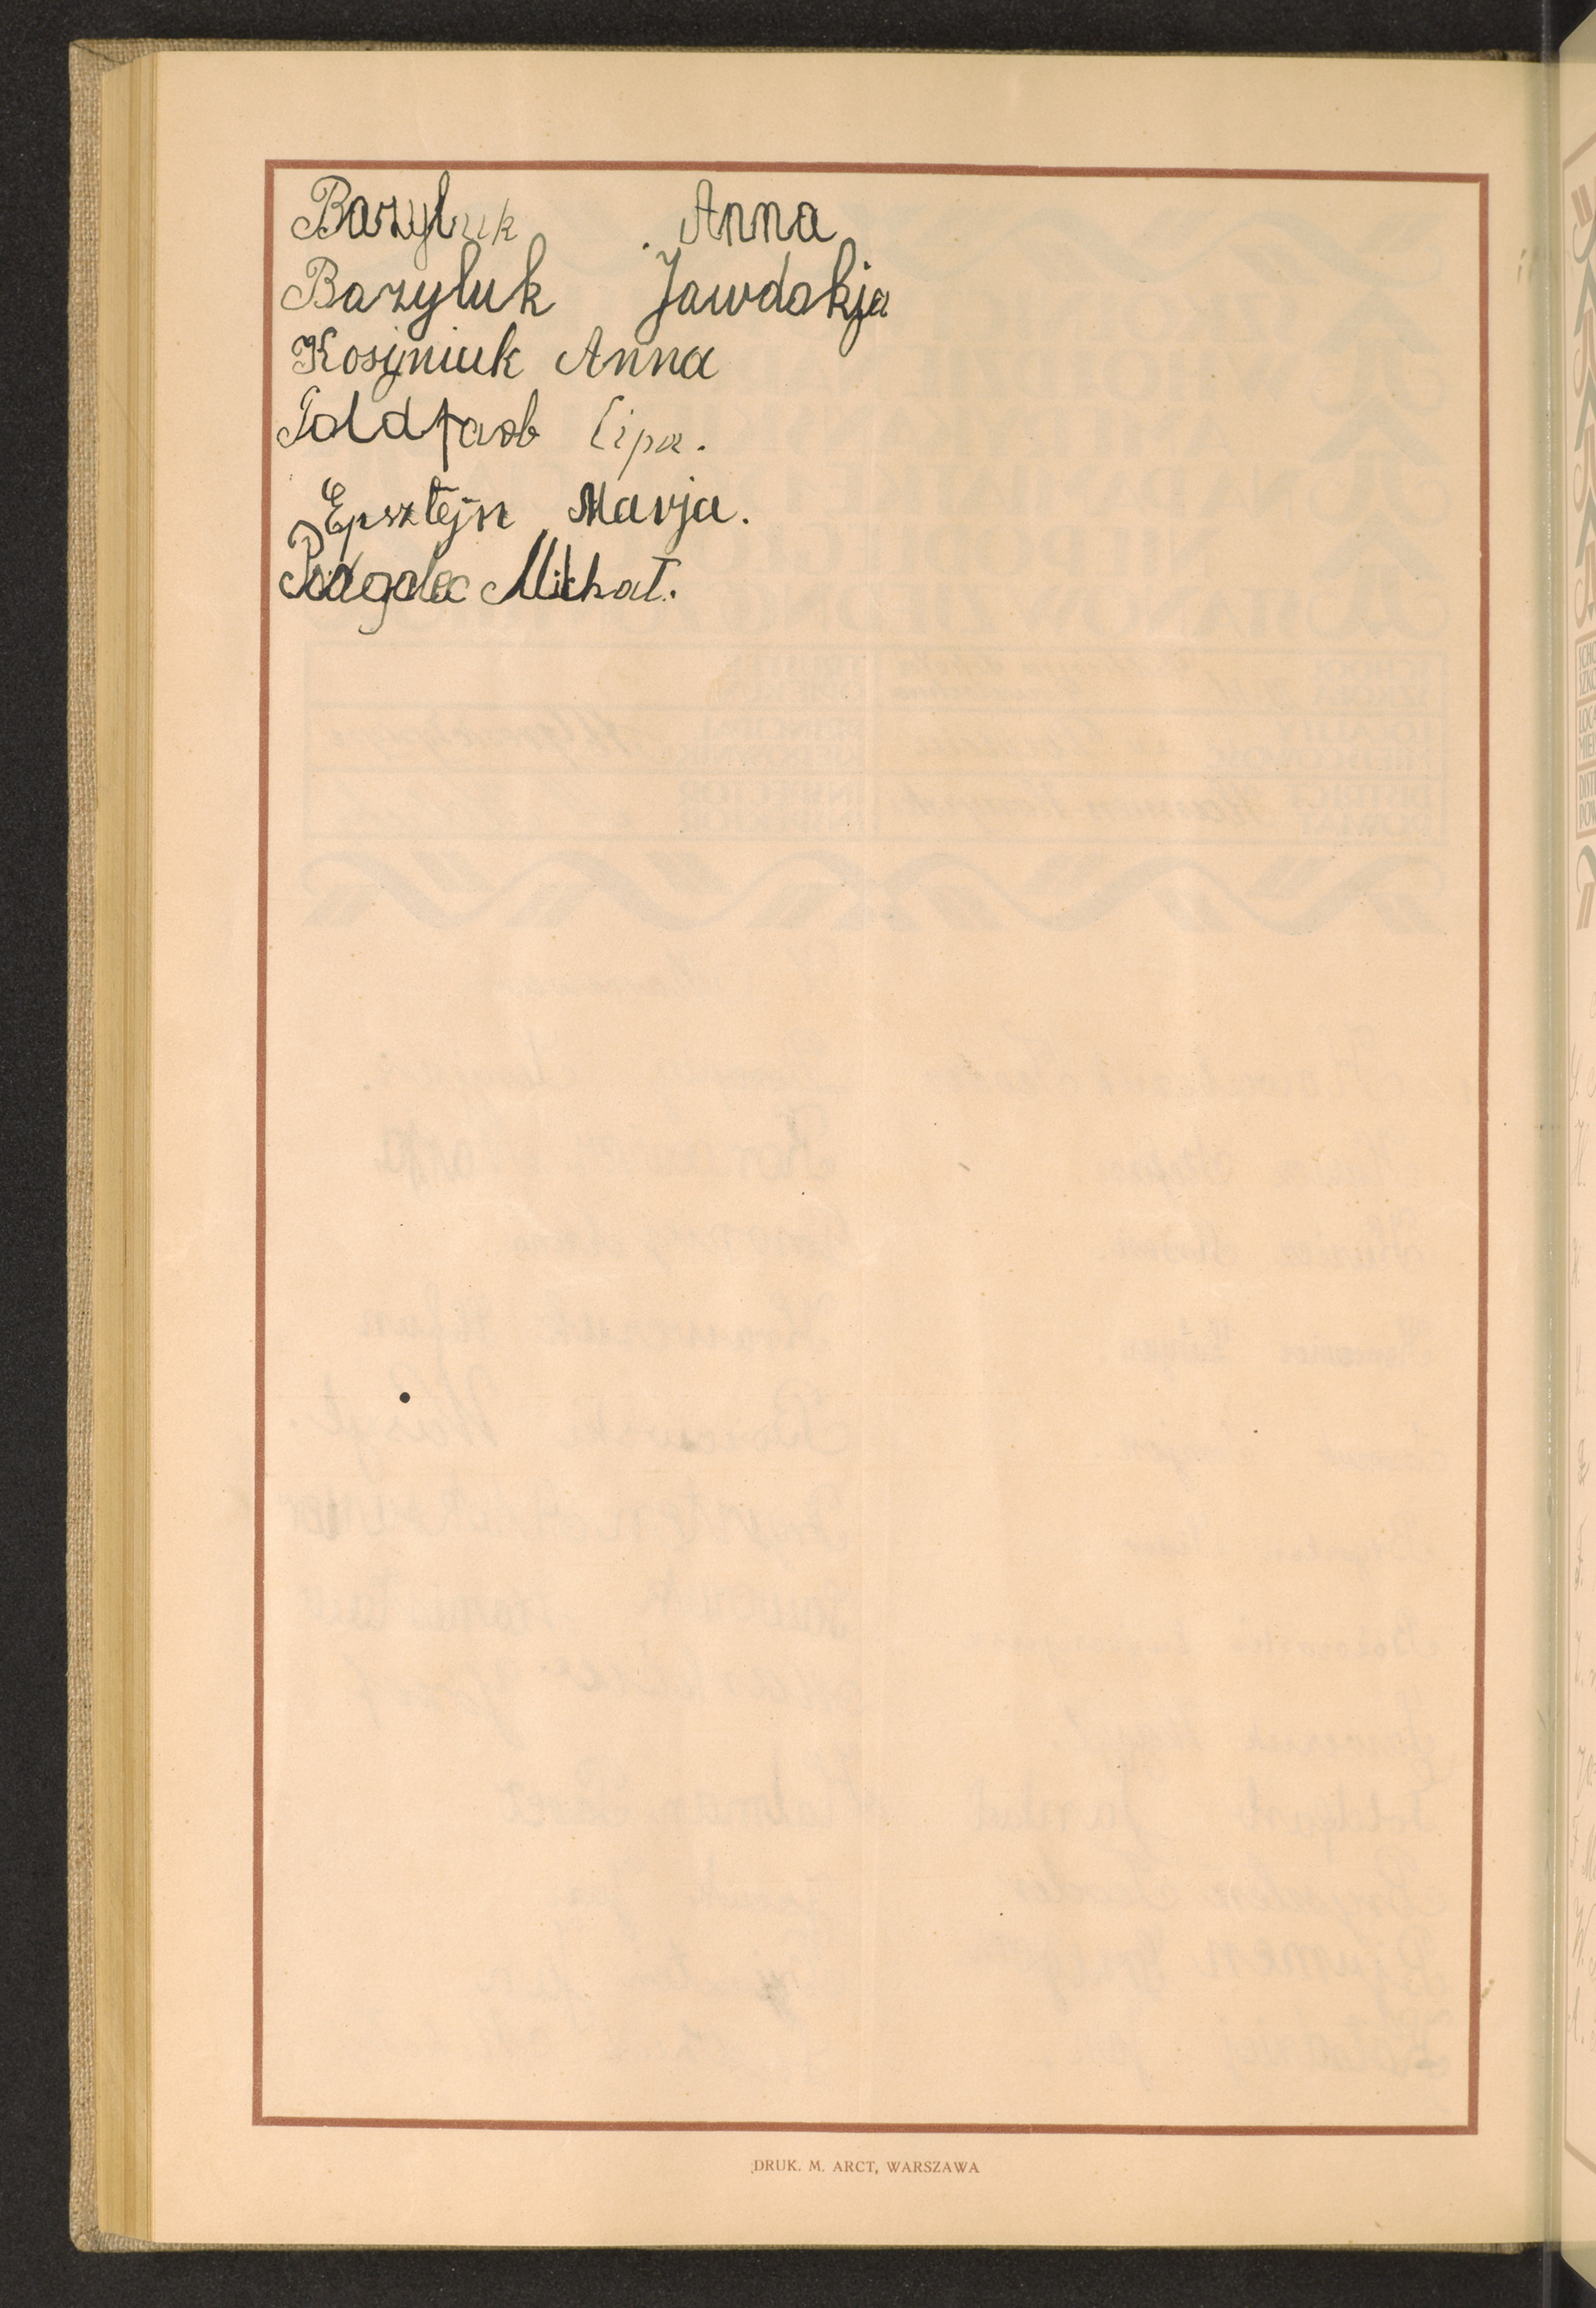 Bazyluk Anna
Bazyluk Jawdokja
Kosyniuk Anna
Goldfarb Cipa.
Epsztejn Marja.
Michał.
DRUK. M. ARCT, WARSZAWA